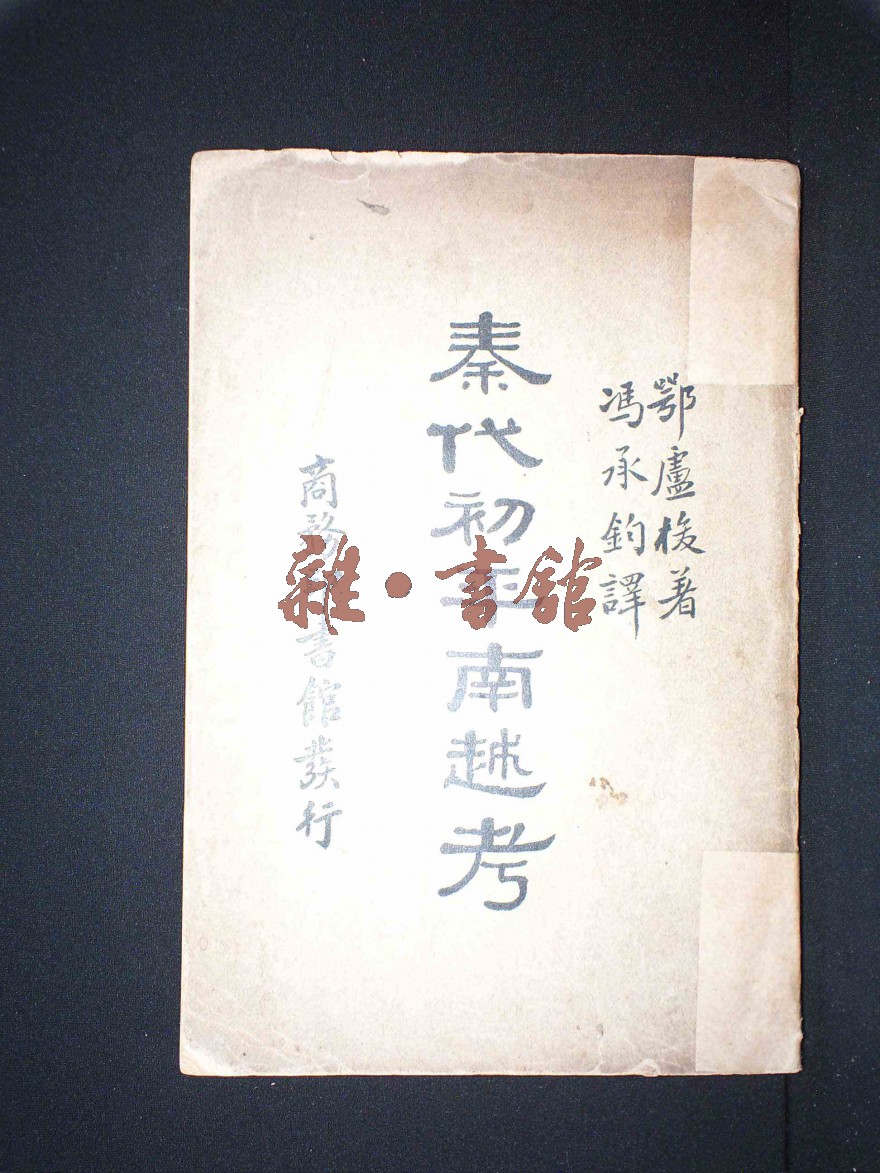 鄂盧梭著
馮承鈞譯
秦代初年南越考
商務印書館發行
雜·書館